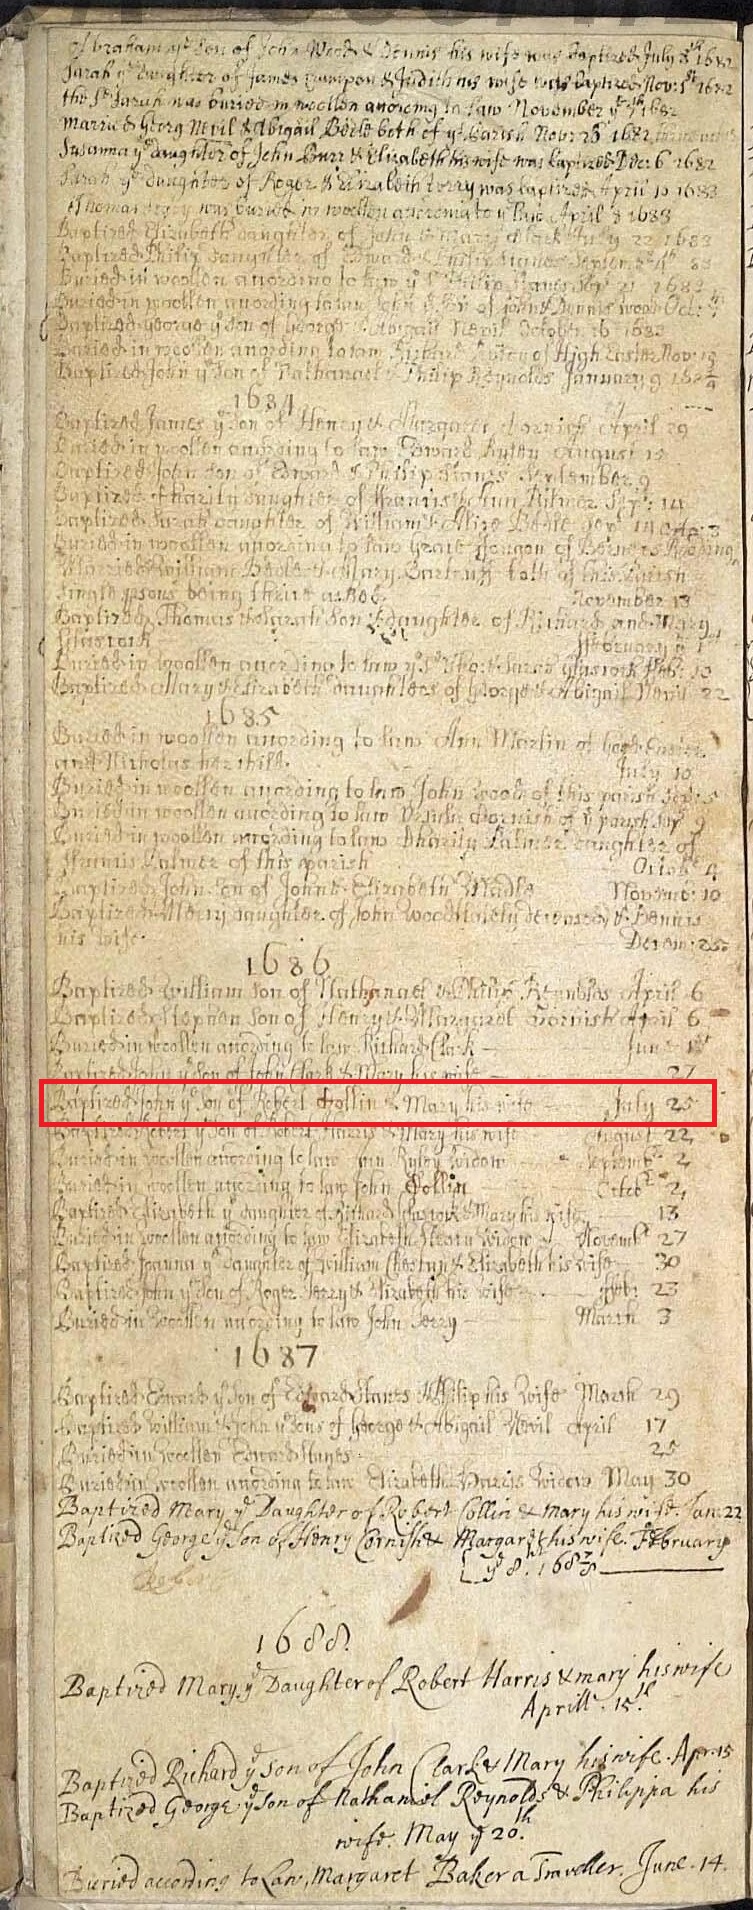 Abraham ye Son of John Wood & Dennis his wife was baptized July 1682
Sarah ye daughter of James & Judith his wife was baptized Nov: 1st 1682
the sd Sarah was buried in woollen according to law November ye 7th 1682
Married Georg Nevil & Abigail Beele both of ys Parish Nov: 23 1682
Susanna ye daughter of John Burr & Elizabeth his wife was baptized Dec: 6 1682
Sarah ye daughter of Roger & Elizabeth Terry was baptized April 1683
Thomas was buried in woollen according to ye law April 8 1683
Baptized Elizabeth daughter of John & Mary Clark July 22 1683
Baptized Philip daughter of Edward & Philip Septemb: 83
Buried in woollen according to law ye sd Philip Sept: 21 1683
Buried in woollen according to law John ye Son of John & Dennis Wood Oct:
Baptized George ye Son of George & Abigail Nevil October 16 1683
Buried in woollen according to law Richard of High Easter Nov: 19
Baptized John ye Son of Nathanael & Philip Reynolds January 9
1684
Baptized James ye Son of Henry & Margaret Cornish April 29
Buried in woollen according to law Edward August 12
Baptized John Son of Edward & Philip Stanes September 9
Baptized Charity daughter of Francis & Ann Palmer Sept: 14
Baptized Sarah daughter of William & Alice Beele Sept 14
Buried in woollen according to law Grace of Berners Rooding
Married William Beele & Mary both of this Parish
single psons being thrice asked November 13
Baptized Thomas & Sarah Son & daughter of Richard and Mary
Glascock ffebruary ye 1st
Buried in woollen according to law ye sd Tho: & Sarah Glascock ffeb: 10
Baptized Mary & Elizabeth daughters of George & Abigail Nevil 22
1685
Buried in woollen according to law Ann Martin of good Easter
and Nicholas her child. July 10
Buried in woollen according to law John Wood of this parish Sep: 5
Buried in woollen according to law Ursula Cornish of ye parish Sep: 9
Buried in woollen according to law Charity Palmer daughter of
Francis Palmer of this parish Octob: 4
Baptized John Son of John & Elizabeth Wadle Novemb: 10
Baptized Mary daughter of John Wood lately deceased & Dennis
his wife. Decem: 25
1686
Baptized William Son of Nathanael & Philip Reynolds April 6
Baptized Stephen Son of Henry & Margaret Cornish April 6
Buried in woollen according to law Richard Clark June 1st
Baptized John ye Son of John Clark & Mary his wife 27
Baptized John ye Son of Robert Collin & Mary his wife July 25
Baptized Robert ye Son of Robert Harris & Mary his wife August 22
Buried in woollen according to law Ann Ryley Widow Septembr 2
Buried in woollen according to law John Collin Octobr 2
Baptized Elizabeth ye daughter of Richard Glascock & Mary his wife 13
Buried in woollen according to law Elizabeth Widow Novembr 27
Baptized Joanna ye daughter of William & Elizabeth his wife 30
Baptized John ye Son of Roger Terry & Elizabeth his wife ffeb: 23
Buried in woollen according to law John Terry March 3
1687
Baptized Edward ye Son of Edward Stanes & Philip his Wife March 29
Baptized William & John ye Sons of George & Abigail Nevil April 17
Buried in Woollen Edward Stanes 25
Buried in woollen according to law Elizabeth Harris Widow May 30
Baptized Mary ye Daughter of Robert Collin & Mary his wife. Jan: 22
Baptized George ye Son of Henry Cornish & Margart his wife. February
ye 8th. 168 7/8
Rober
1688.
Baptized Mary ye Daughter of Robert Harris & mary his wife
Aprill. 15th.
Baptized Richard ye son of John Clark & Mary his wife. Apr: 15
Baptized George ye son of Nathaniel Reynolds & Philippa his
wife. May ye 20th.
Buried according to Law, Margaret Baker a Traveller. June. 14.